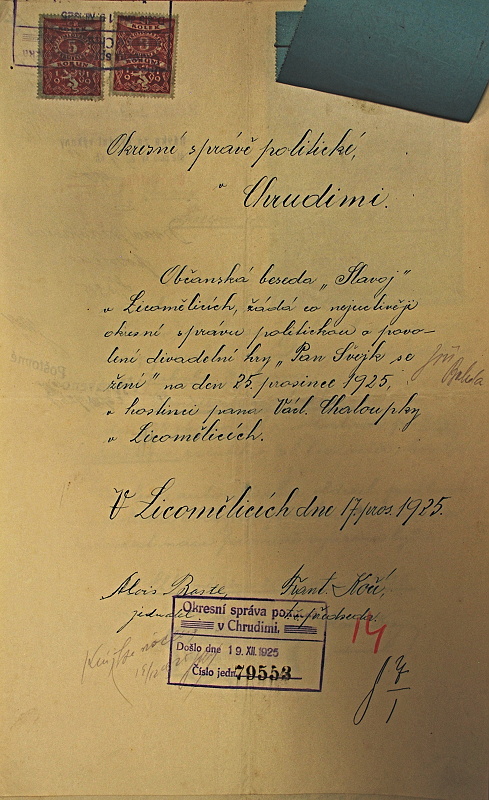 KOLEK
5
KOLEK
Okresní správě politické,
v
Chrudimi.
Občanská beseda „Slavoj"
v Licomělicích, žádá co nejuctivěji
okresní správu politickou o povo-
lení divadelní hry „Pan Švejk se
žení" na den 25 prosince 1925,
v hostinci pana Václ. Chaloupky
v Licomělicích.
V Licomělicích dne 17. pros. 1925.
Alois Frant. Kočí,
jednatel předseda.
Okresní správa
v Chrudimi.
14
Došlo dne 19. XII. 1925
Číslo jedn. 79553